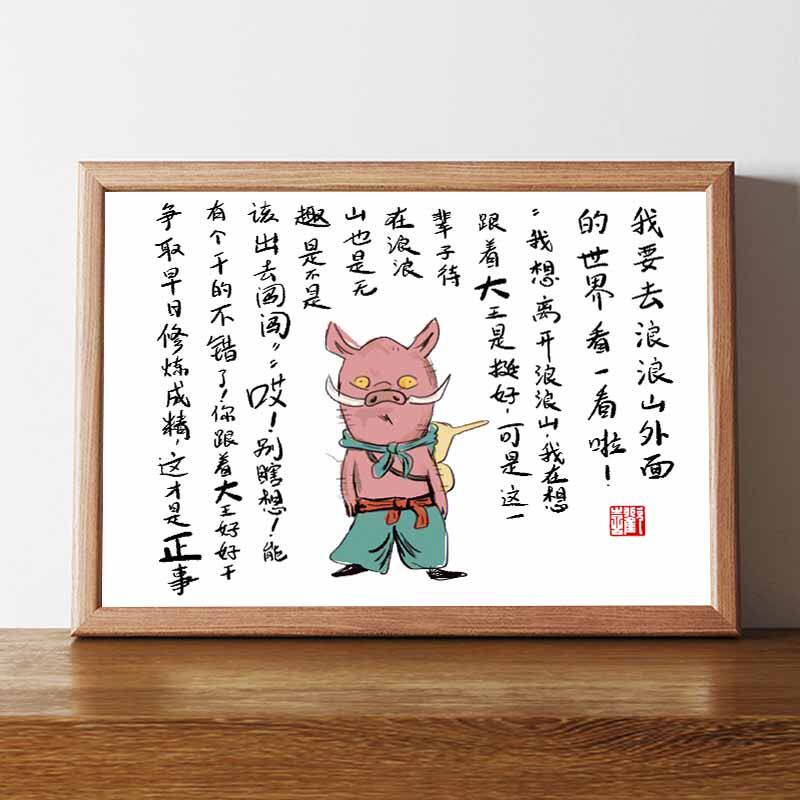 我要去浪浪山外面
的世界看一看啦！
“我想离开浪浪山，我在想
跟着大王是挺好，可是这一
辈子待
在浪浪
山也是无
趣是不是
该出去闯闯”“哎！别瞎想！能
有个干的不错了！你跟着大王好好干
争取早日修炼成精，这才是正事